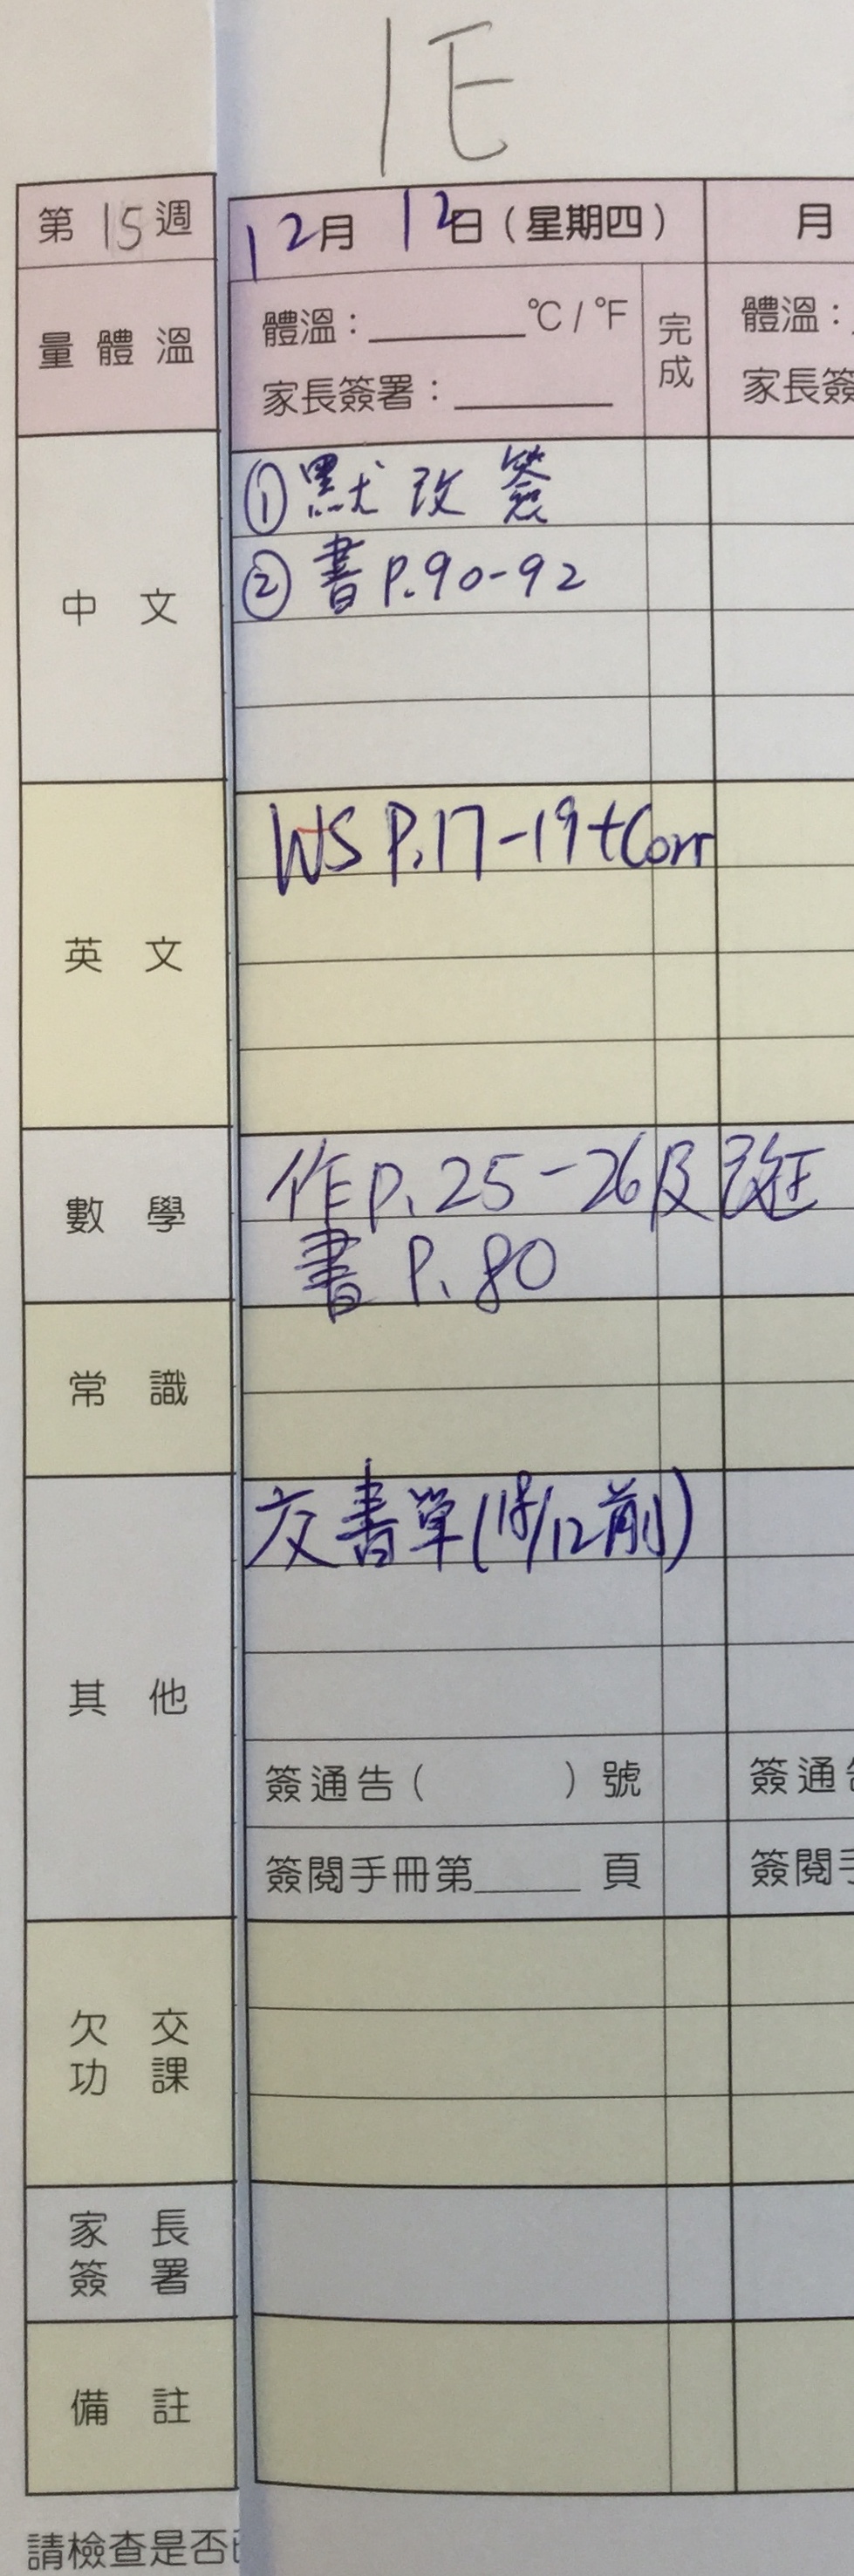 1E
第15週
12月12日(星期四)
月
量體溫
體溫：______°C/°F
完成
體溫：
家長簽署：______
家長簽
中文
①默改簽
②書P.90-92
英文
WS P.17-19+Corr
數學
作P.25-26及改正
書P.80
常識
其他
交書單(18/12前)
簽通告(　　)號
簽通告
簽閱手冊第____頁
簽閱手
欠交功課
家長簽署
備註
請檢查是否已